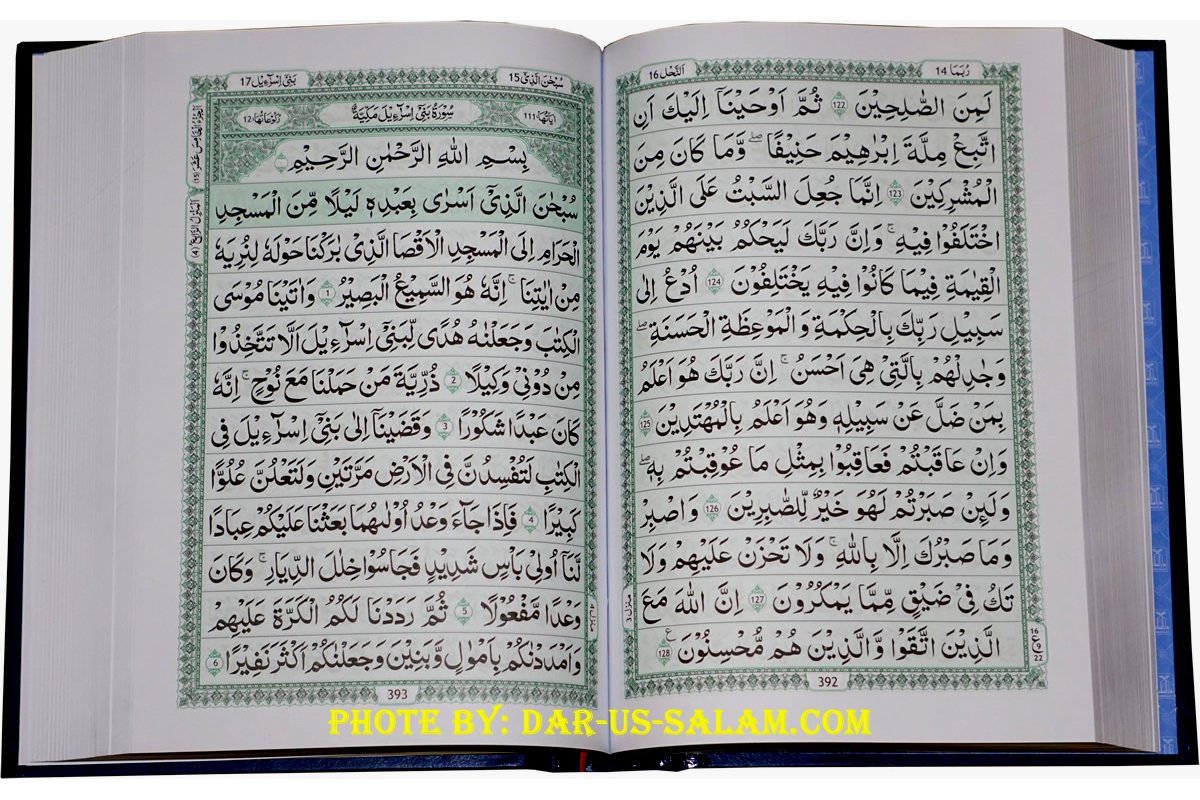 رُبَمَا 14
اَلنَّحْل 16
لَمِنَ الصّٰلِحِيْنَ 122 ثُمَّ اَوْحَيْنَاۤ اِلَيْكَ اَنِ
اتَّبِعْ مِلَّةَ اِبْرٰهِيْمَ حَنِيْفًا ؕ وَمَا كَانَ مِنَ
الْمُشْرِكِيْنَ 123 اِنَّمَا جُعِلَ السَّبْتُ عَلَى الَّذِيْنَ
اخْتَلَفُوْا فِيْهِ ؕ وَاِنَّ رَبَّكَ لَيَحْكُمُ بَيْنَهُمْ يَوْمَ
الْقِيٰمَةِ فِيْمَا كَانُوْا فِيْهِ يَخْتَلِفُوْنَ 124 اُدْعُ اِلٰى
سَبِيْلِ رَبِّكَ بِالْحِكْمَةِ وَالْمَوْعِظَةِ الْحَسَنَةِ
وَجَادِلْهُمْ بِالَّتِيْ هِيَ اَحْسَنُ ؕ اِنَّ رَبَّكَ هُوَ اَعْلَمُ
بِمَنْ ضَلَّ عَنْ سَبِيْلِهٖ وَهُوَ اَعْلَمُ بِالْمُهْتَدِيْنَ 125
وَاِنْ عَاقَبْتُمْ فَعَاقِبُوْا بِمِثْلِ مَا عُوْقِبْتُمْ بِهٖ ؕ
وَلَىِٕنْ صَبَرْتُمْ لَهُوَ خَيْرٌ لِّلصّٰبِرِيْنَ 126 وَاصْبِرْ
وَمَا صَبْرُكَ اِلَّا بِاللّٰهِ وَلَا تَحْزَنْ عَلَيْهِمْ وَلَا
تَكُ فِيْ ضَيْقٍ مِّمَّا يَمْكُرُوْنَ 127 اِنَّ اللّٰهَ مَعَ
الَّذِيْنَ اتَّقَوْا وَّالَّذِيْنَ هُمْ مُّحْسِنُوْنَ 128
16
ع
9
22
392
سُبْحٰنَ الَّذِيْ 15
بَنِيْ اِسْرَآءِيْل 17
اٰيَاتُهَا 111
سُوْرَةُ بَنِيْ اِسْرَآءِيْلَ مَكِّيَّةٌ
رُكُوْعَاتُهَا 12
بِسْمِ اللّٰهِ الرَّحْمٰنِ الرَّحِيْمِ
سُبْحٰنَ الَّذِيْۤ اَسْرٰى بِعَبْدِهٖ لَيْلًا مِّنَ الْمَسْجِدِ
الْحَرَامِ اِلَى الْمَسْجِدِ الْاَقْصَا الَّذِيْ بٰرَكْنَا حَوْلَهٗ لِنُرِيَهٗ
مِنْ اٰيٰتِنَا ؕ اِنَّهٗ هُوَ السَّمِيْعُ الْبَصِيْرُ 1 وَاٰتَيْنَا مُوْسَى
الْكِتٰبَ وَجَعَلْنٰهُ هُدًى لِّبَنِيْۤ اِسْرَآءِيْلَ اَلَّا تَتَّخِذُوْا
مِنْ دُوْنِيْ وَكِيْلًا 2 ذُرِّيَّةَ مَنْ حَمَلْنَا مَعَ نُوْحٍ ؕ اِنَّهٗ
كَانَ عَبْدًا شَكُوْرًا 3 وَقَضَيْنَاۤ اِلٰى بَنِيْۤ اِسْرَآءِيْلَ فِي
الْكِتٰبِ لَتُفْسِدُنَّ فِي الْاَرْضِ مَرَّتَيْنِ وَلَتَعْلُنَّ عُلُوًّا
كَبِيْرًا 4 فَاِذَا جَآءَ وَعْدُ اُوْلٰىهُمَا بَعَثْنَا عَلَيْكُمْ عِبَادًا
لَّنَاۤ اُولِيْ بَاْسٍ شَدِيْدٍ فَجَاسُوْا خِلٰلَ الدِّيَارِ ؕ وَكَانَ
وَعْدًا مَّفْعُوْلًا 5 ثُمَّ رَدَدْنَا لَكُمُ الْكَرَّةَ عَلَيْهِمْ
وَاَمْدَدْنٰكُمْ بِاَمْوَالٍ وَّبَنِيْنَ وَجَعَلْنٰكُمْ اَكْثَرَ نَفِيْرًا 6
اَلْجُزْءُ الْخَامِسَ عَشَرَ (15)
اَلْمَنْزِلُ الرَّابِعُ (4)
393
PHOTE BY: DAR-US-SALAM.COM